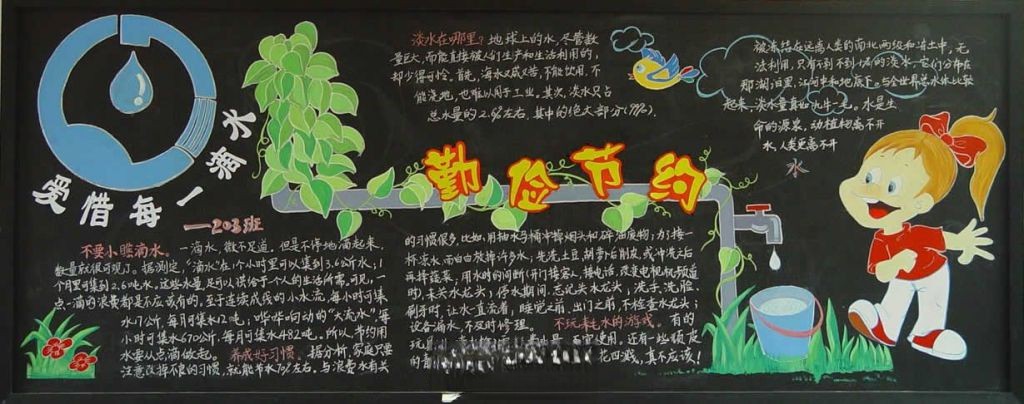 爱惜每一滴水
——203班
勤俭节约
不要小瞧滴水。一滴水,微不足道。但是不停地滴起来,
数量就很可观了。据测定,"滴水"在1个小时里可以集到3.6公斤水;1
个月里可集到2.6吨水,这些水量足可以供给一个人的生活所需。可见,一
点一滴的浪费都是不应该有的。至于连续成线的小水流,每小时可集
水17公斤,每月可集水12吨;哗哗响动的"大流水",每
小时可集水670公斤,每月可集水482吨。所以,节约用
水要从点滴做起。 养成好习惯。 据分析,家庭只要
注意改掉不良的习惯,就能节水70%左右。与浪费水有关
的习惯很多,比如,用抽水马桶冲掉烟头和碎细废物;为了接一
杯凉水,而白白放掉许多水;先洗土豆、胡萝卜后削皮,或冲洗之后
再择蔬菜;用水时的间断(开门接客人,接电话,改变电视机频道
时),未关水龙头;停水期间,忘记关水龙头;洗手、洗脸、
刷牙时,让水一直流着;睡觉之前、出门之前,不检查水龙头;
设备漏水,不及时修理。 不玩耗水的游戏。 有的
玩具
使用,还有一些顽皮
的
花四溅,真不应该!
淡水在哪里?地球上的水,尽管数
量巨大,而能直接被人们生产和生活利用的,
却少得可怜。首先,海水又咸又苦,不能饮用,不
能浇地,也难以用于工业。其次,淡水只占
总水量的2.6%左右,其中的绝大部分(77%),
被冻结在远离人类的南北两极和冻土中,无
法利用,只有不到
的淡水,它们分布在
湖泊里、江河中和地底下。与全世界总水体比较
起来,淡水量真如九牛一毛。水是生
命的源泉,动植物离不开
水,人类更离不开
水